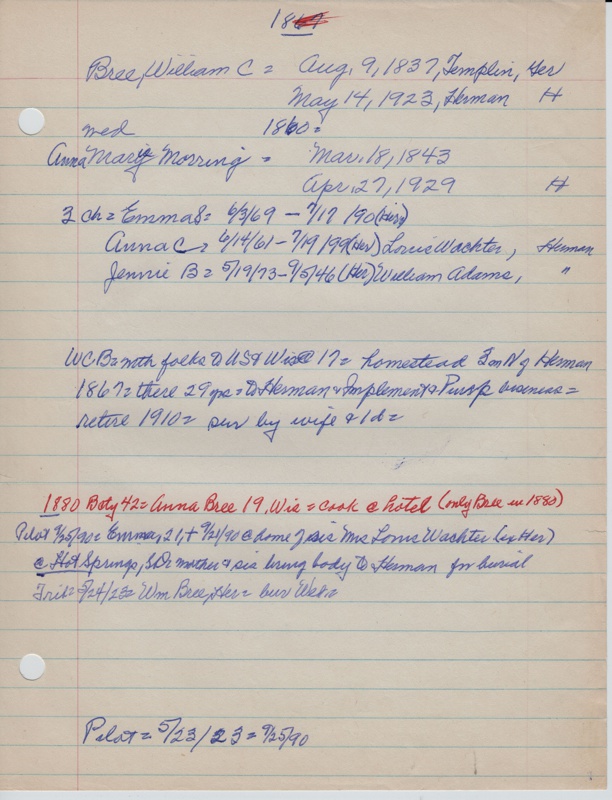 1867
Bree, William C = Aug. 9, 1837, Templin, Ger
May 14, 1923, Herman H
med 1860=
Anna Maria Morring = Mar. 18, 1843
Apr. 27, 1929 H
3 ch = Emma S = 6/3/69 - 9/17/90 (Her)
Anna C = 6/14/61 - 7/19/99 (Her) Louis Wachter, Herman
Jennie B = 5/19/73 - 9/5/46 (Her) William Adams, "
WCB = with folks to US & Wis @ 17 = homestead 3 m N of Herman
1867 = there 29 yrs = to Herman & Implement & Pump business =
retire 1910 = sur by wife & 1 d =
1880 Boty 42 = Anna Bree 19, Wis = cook @ hotel (only Bree in 1880)
Pilot 9/25/90 = Emma, 21, + 9/21/90 @ home of sis Mrs Louis Wachter (ex Her)
@ Hot Springs, S.D = mother & sis bring body to Herman for burial
Trib = 5/24/23 = Wm Bree, Her = bur Wed =
Pilot = 5/23/23 = 9/25/90